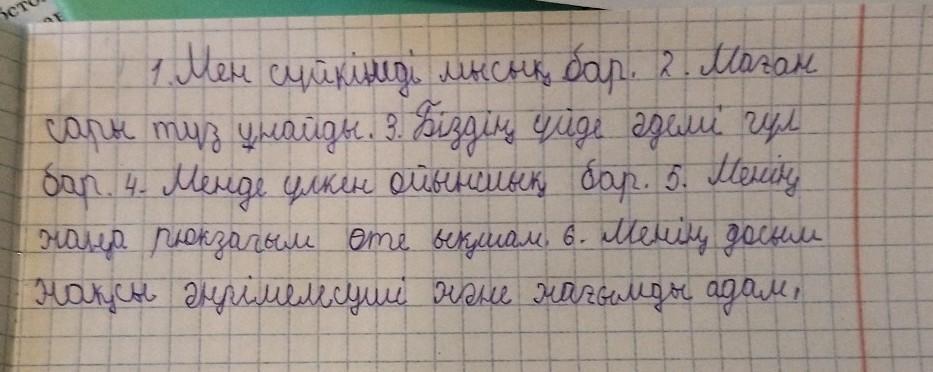 1. Мен сүйкімді мысық бар. 2. Маған
сары түз ұнайды. 3. Біздің үйде әдемі гүл
бар. 4. Менде үлкен ойыншық бар. 5. Менің
жаңа рюкзагым өте ықшам. 6. Менің досым
жақсы әңгімелесуші және жағымды адам.